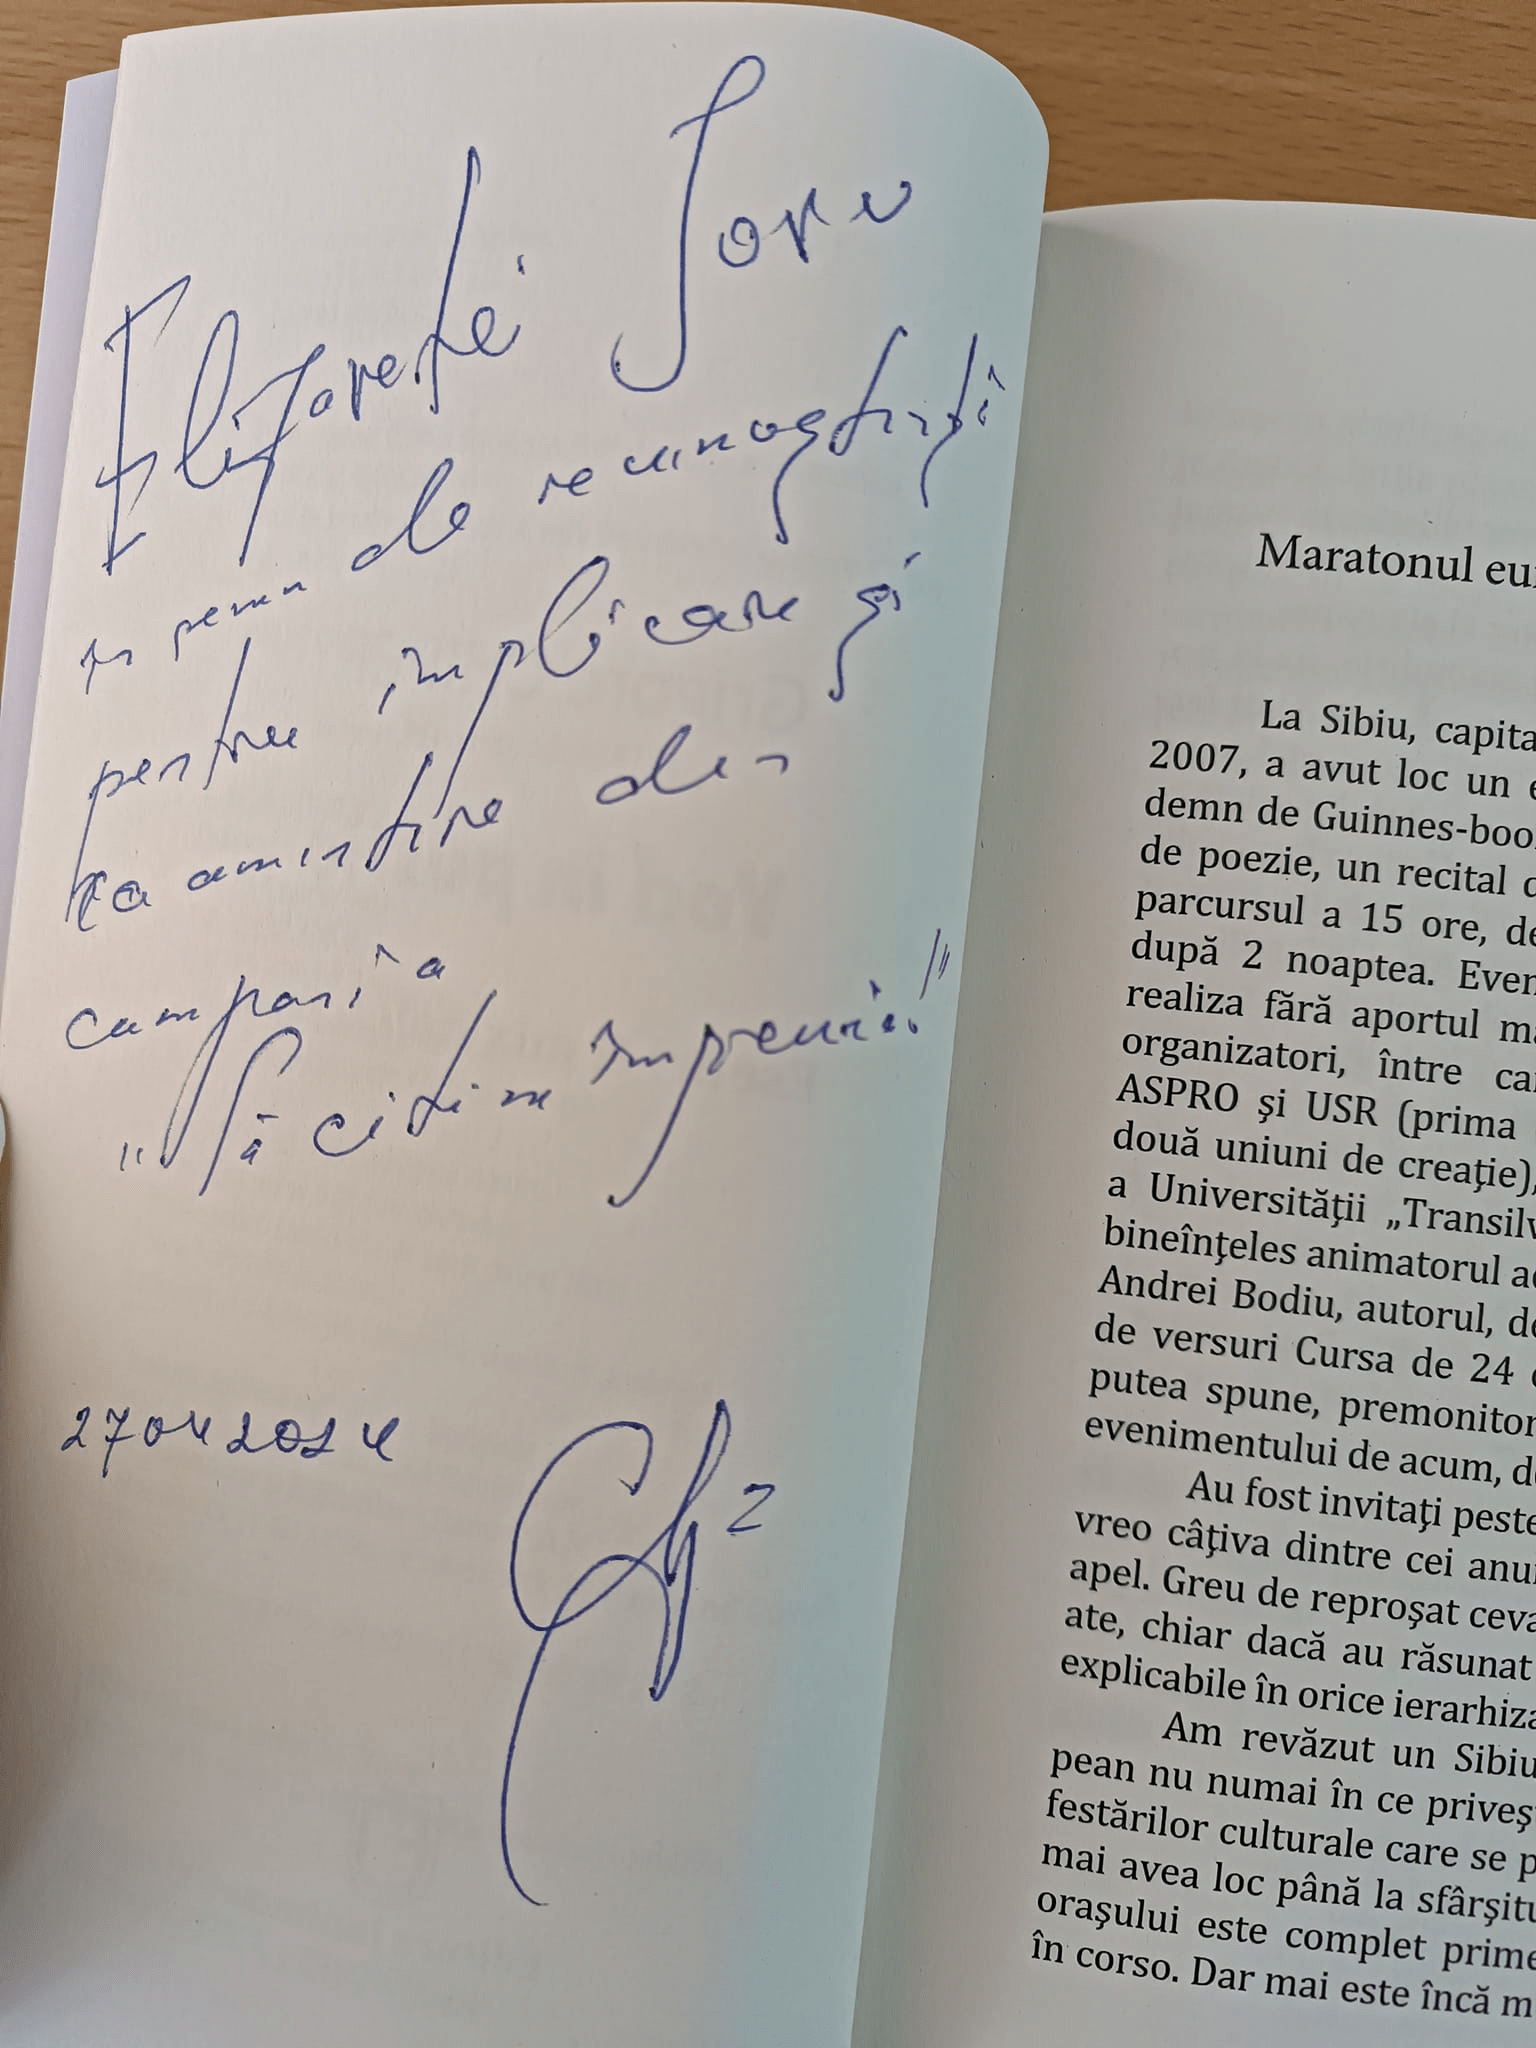 Elisabetei Soru
în semn de recunoștință
pentru implicare și
ca amintire din
campania
„Să citim împreună!"
27 04 2024
Maratonul eu
La Sibiu, capita
2007, a avut loc un e
demn de Guinnes-boo
de poezie, un recital d
parcursul a 15 ore, de
după 2 noaptea. Even
realiza fără aportul ma
organizatori, între ca
ASPRO şi USR (prima
două uniuni de creaţie),
a Universităţii „Transilv
bineînţeles animatorul a
Andrei Bodiu, autorul, de
de versuri Cursa de 24
putea spune, premonitor
evenimentului de acum, d
Au fost invitaţi peste
vreo câţiva dintre cei anu
apel. Greu de reproşat ceva
ate, chiar dacă au răsunat
explicabile în orice ierarhiza
Am revăzut un Sibiu
pean nu numai în ce priveş
festărilor culturale care se p
mai avea loc până la sfârşitu
oraşului este complet prime
în corso. Dar mai este încă m